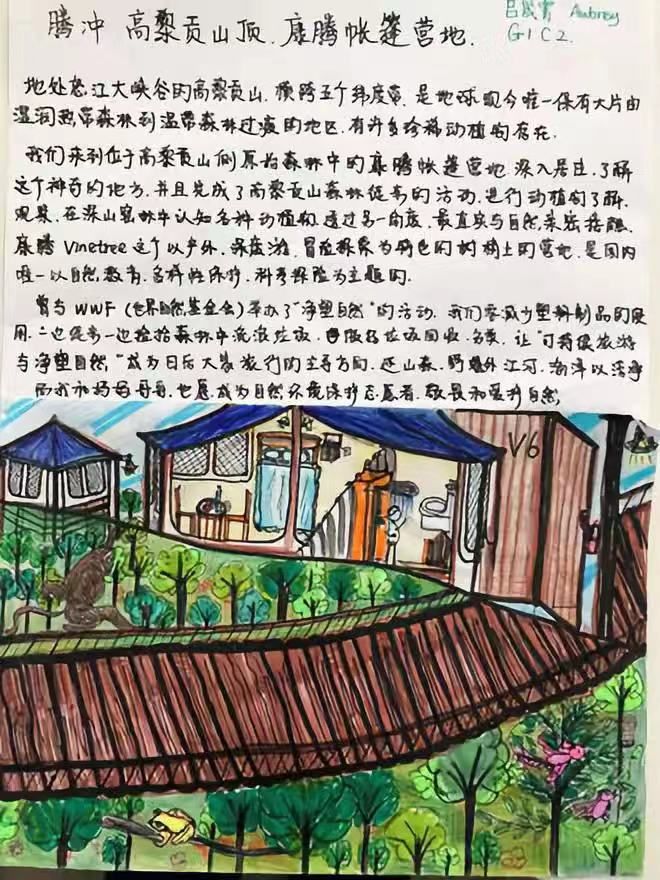 腾冲 高黎贡山顶.康腾帐篷营地.
Aubrey
G1C2
地处怒江大峡谷的高黎贡山.横跨五个纬度带.是地球现今唯一保有大片由
湿润热带森林到温带森林过渡的地区.有许多珍稀动植物存在.
我们来到位于高黎贡山侧原始森林中的康腾帐篷营地.深入居住.了解
这个神奇的地方.并且完成了高黎贡山森林徒步的活动.进行动植物了解.
观察.在深山密林中认知各种动植物.透过另一角度.最真实与自然亲密接触.
康腾Vinetree这个以户外.深度游.冒险探索为特色的树稍上的营地.是国内
唯一以自然教育.多样性保持.科考探险为主题的.
曾与WWF(世界自然基金会)举办了"净塑自然"的活动.我们要减少塑料制品的使
用.一边徒步一边捡拾森林中垃圾.回收.让"可持续旅游
与净塑自然."成为日后大家旅行的主导方向.还山森.野外江河.海洋以洁净
而我和妈妈哥哥.也愿成为自然环境保护志愿者.敬畏和爱护自然.
V6